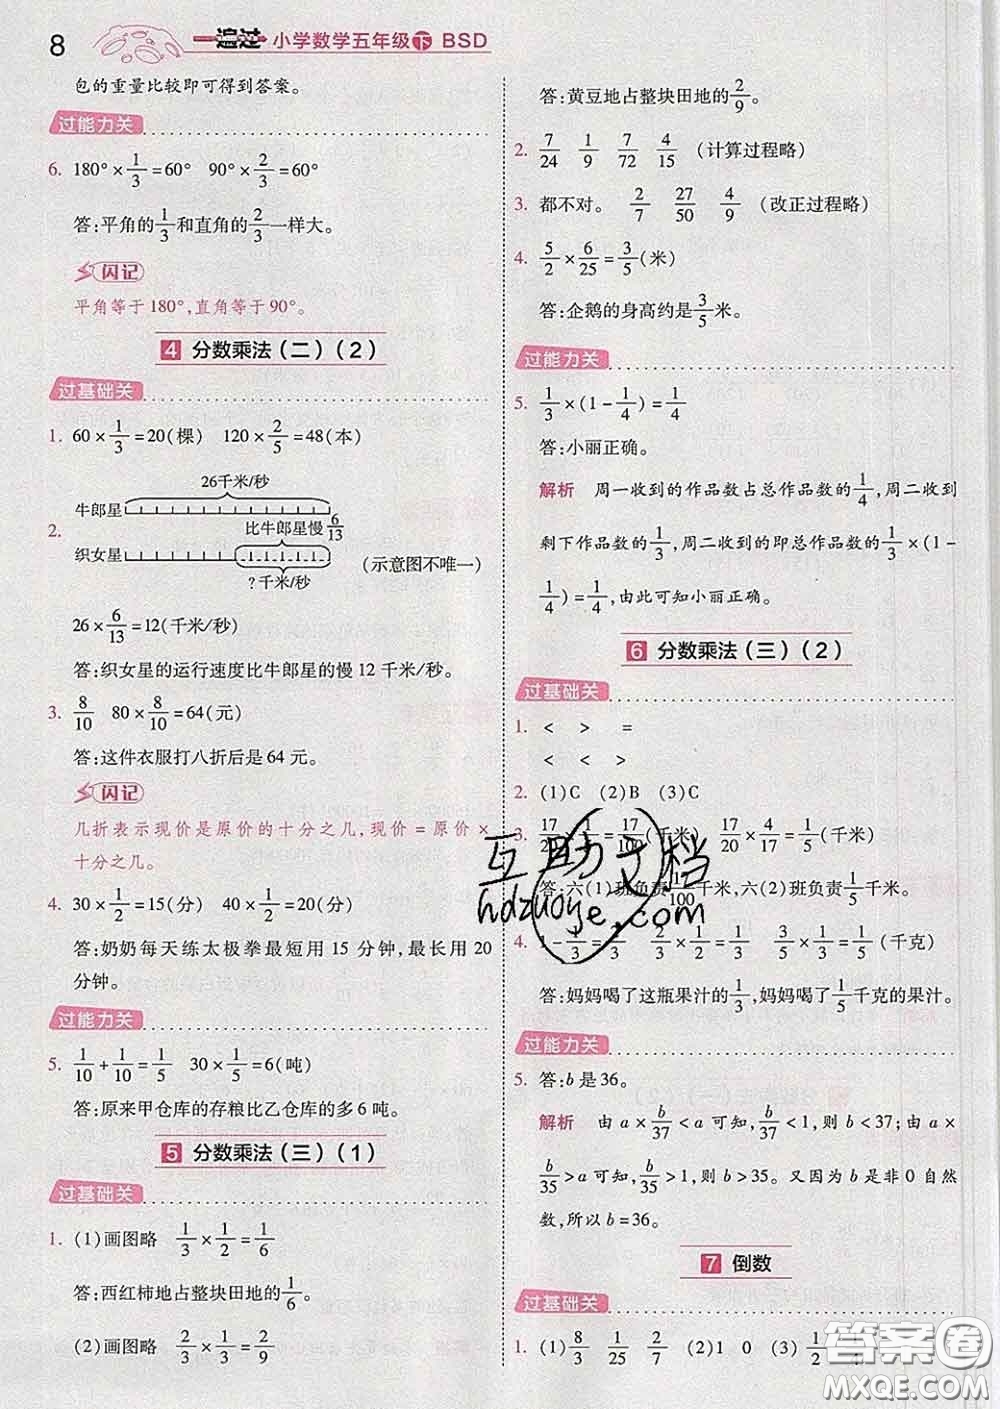 8 一遍过 小学数学五年级下 BSD
包的重量比较即可得到答案。
过能力关
6. 180°×1/3=60° 90°×2/3=60°
答:平角的1/3和直角的2/3一样大。
闪记
平角等于180°,直角等于90°。
4 分数乘法(二)(2)
过基础关
1. 60×1/3=20(棵) 120×2/5=48(本)
2.
26千米/秒
牛郎星
比牛郎星慢6/13
织女星
?千米/秒
(示意图不唯一)
26×6/13=12(千米/秒)
答:织女星的运行速度比牛郎星的慢12千米/秒。
3. 8/10 80×8/10=64(元)
答:这件衣服打八折后是64元。
闪记
几折表示现价是原价的十分之几,现价=原价×
十分之几。
4. 30×1/2=15(分) 40×1/2=20(分)
答:奶奶每天练太极拳最短用15分钟,最长用20
分钟。
过能力关
5. 1/10+1/10=1/5 30×1/5=6(吨)
答:原来甲仓库的存粮比乙仓库的多6吨。
5 分数乘法(三)(1)
过基础关
1. (1)画图略 1/3×1/2=1/6
答:西红柿地占整块田地的1/6。
(2)画图略 2/3×1/3=2/9
答:黄豆地占整块田地的2/9。
2. 7/24 1/9 7/72 4/15 (计算过程略)
3. 都不对。 2/7 27/50 4/9 (改正过程略)
4. 5/2×6/25=3/5(米)
答:企鹅的身高约是3/5米。
过能力关
5. 1/3×(1-1/4)=1/4
答:小丽正确。
解析 周一收到的作品数占总作品数的1/4,周二收到
剩下作品数的1/3,周二收到的即总作品数的1/3×(1-
1/4)=1/4,由此可知小丽正确。
6 分数乘法(三)(2)
过基础关
1. < > =
< < >
2. (1)C (2)B (3)C
3. 17/20×1/5=17/100(千米) 17/20×4/17=1/5(千米)
答:六(1)班负责17/100千米,六(2)班负责1/5千米。
4. 1-1/3=2/3 2/3×1/2=1/3 3/5×1/3=1/5(千克)
答:妈妈喝了这瓶果汁的1/3,妈妈喝了1/5千克的果汁。
过能力关
5. 答:b是36。
解析 由a×b/37<a可知,b/37<1,则b<37;由a×
b/35>a可知,b/35>1,则b>35。又因为b是非0自然
数,所以b=36。
7 倒数
过基础关
1. (1)8/3 1/25 2/7 (2)1 0 (3)1/2
互助文档
hdzuoye.com
答案圈
MXQE.COM